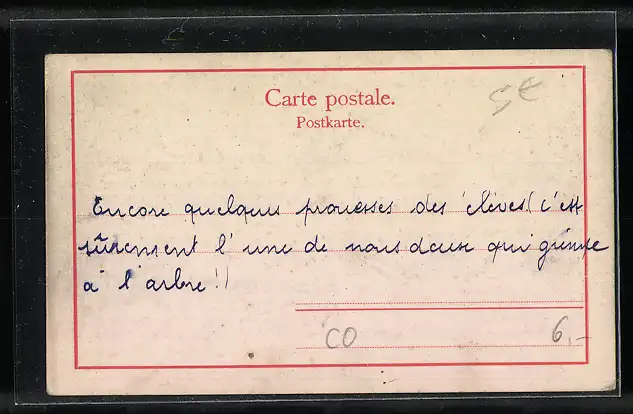 Carte postale.
Postkarte.
5€
Encore quelques prouesses des élèves (c'est
sûrement l'une de nous deux qui grimpe
à l'arbre!)
CO
6,-